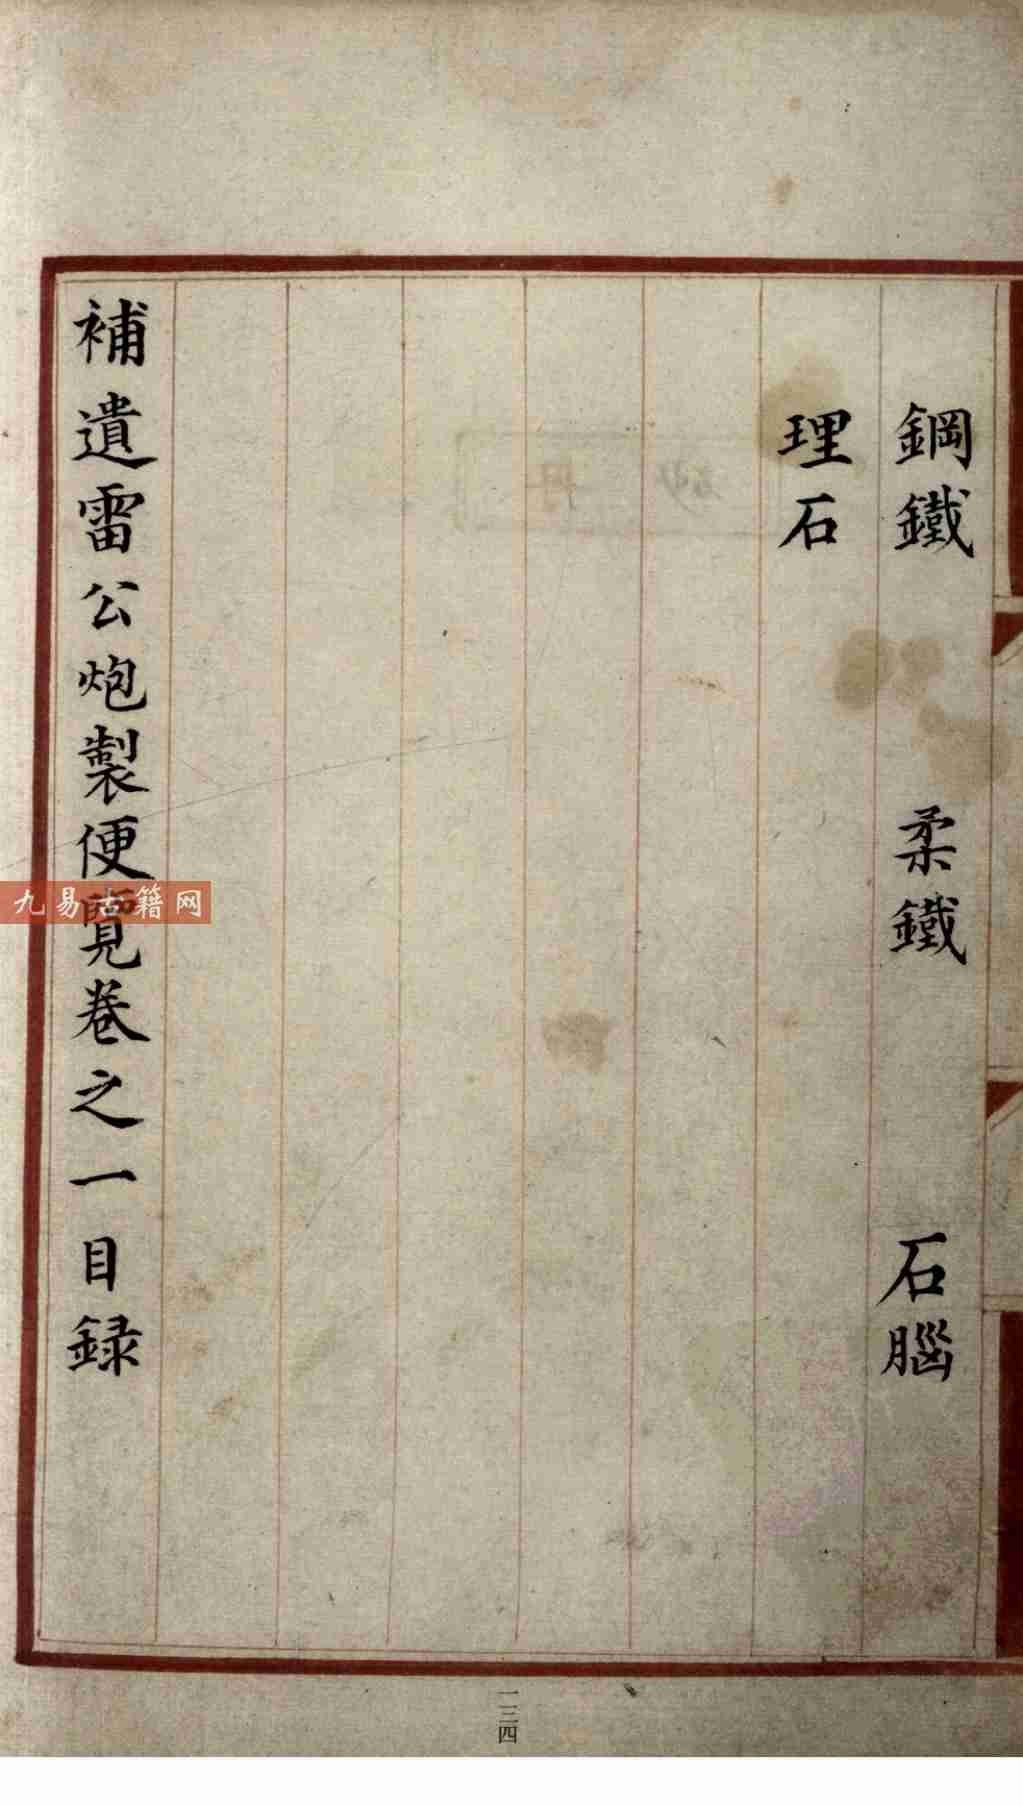 鋼鐵　柔鐵　石腦
理石
補遺雷公炮製便覽卷之一目録
九易古籍网
一三四